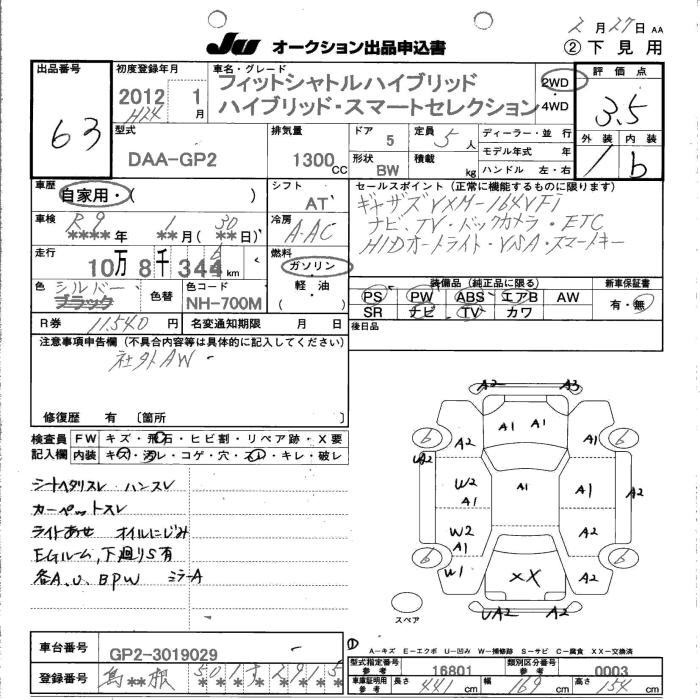 2月27日 AA
JU オークション出品申込書
②下見用
出品番号 63
初度登録年月 2012 H24 1月
車名・グレード
フィットシャトルハイブリッド
ハイブリッド・スマートセレクション
2WD
4WD
評価点 3.5
外装 内装
1 b
型式 DAA-GP2
排気量 1300CC
ドア 5
定員 5人
形状 BW
積載 kg
ディーラー・並行
モデル年式 年
ハンドル 左・右
車歴 自家用・( )
シフト AT
車検 R9 **** 年 1 ** 月 (30 ** 日)
冷房 A-AC
走行 10万8千344km
6
燃料 ガソリン
軽油
( )
色 シルバー
ブラック
色替
色コード NH-700M
セールスポイント (正常に機能するものに限ります)
ギャザズVXM-164VFi
ナビ、TV・バックカメラ・ETC
HIDオートライト・VSA・スマートキー
装備品 (純正品に限る)
PS PW ABS エアB AW
SR ナビ TV カワ
新車保証書
有・無
R券 11540円
名変通知期限 月 日
後日品
注意事項申告欄 (不具合内容等は具体的に記入してください)
社外AW
修復歴 有 [箇所 ]
検査員記入欄
FW キズ・飛石・ヒビ割・リペア跡・X要
内装 キズ・汚レ・コゲ・穴・スレ・キレ・破レ
シートヘタリスレ ハンスレ
カーペットスレ
ライトあせ オイルにじみ
EGルーム,下廻りS有
各A.U. BPW ミラーA
A2 A3
6 A2 A1 A1 A1 6
UA2 W2 A1 A1 A1 A2
W2 A1 A2
6 W1 XX A2 6
UA2 A2
スペア
A-キズ E-エクボ U-凹み W-補修跡 S-サビ C-腐食 XX-交換済
車台番号 GP2-3019029
登録番号 島**根 501す2915
型式指定番号 参考 16801
類別区分番号 参考 0003
車庫証明用 参考 長さ 441cm 幅 169cm 高さ 154cm